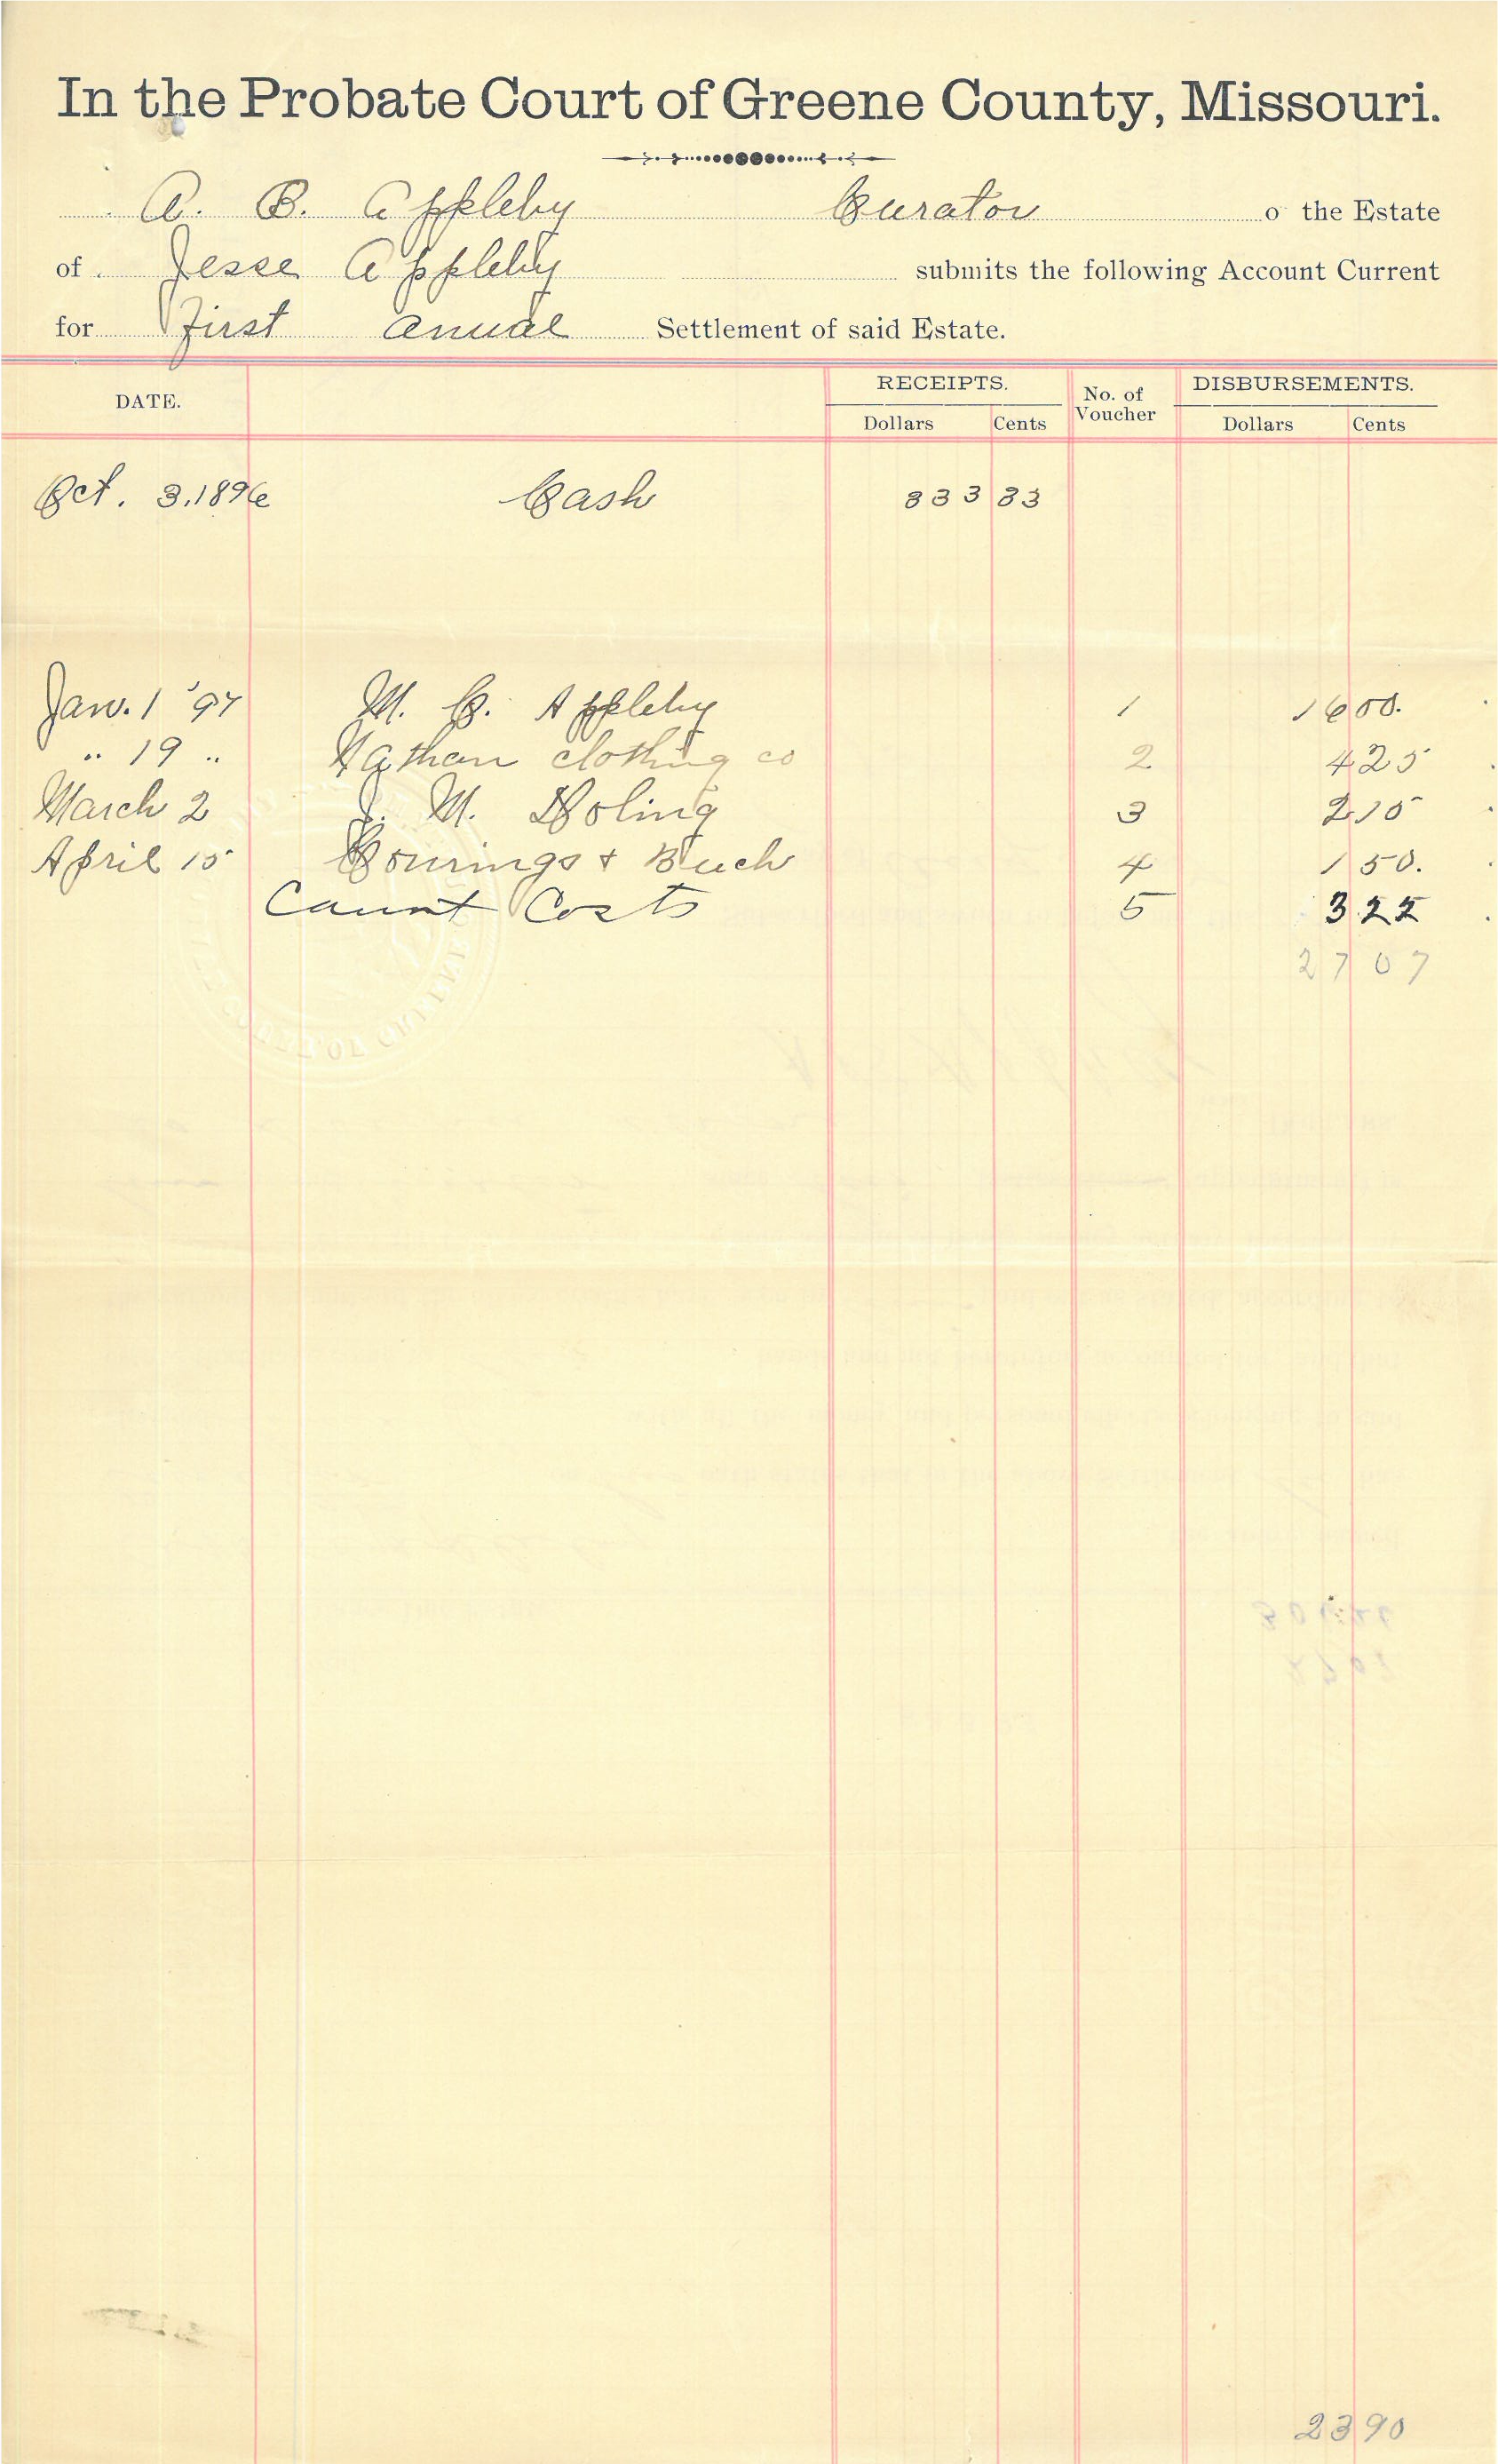 In the Probate Court of Greene County, Missouri.
A. B. Appleby Curator o the Estate
of Jesse Appleby submits the following Account Current
for First Anual Settlement of said Estate.
DATE. RECEIPTS. No. of Voucher DISBURSEMENTS.
Dollars Cents Dollars Cents
Oct. 3, 1896 Cash 333 33
Jan. 1 '97 M. C. Appleby 1 16 00.
" 19 " Nathan clothing co 2 4 25
March 2 J. M. Doling 3 2 10
April 15 & 4 1 50.
Court Costs 5 3 22
27 07
23 90